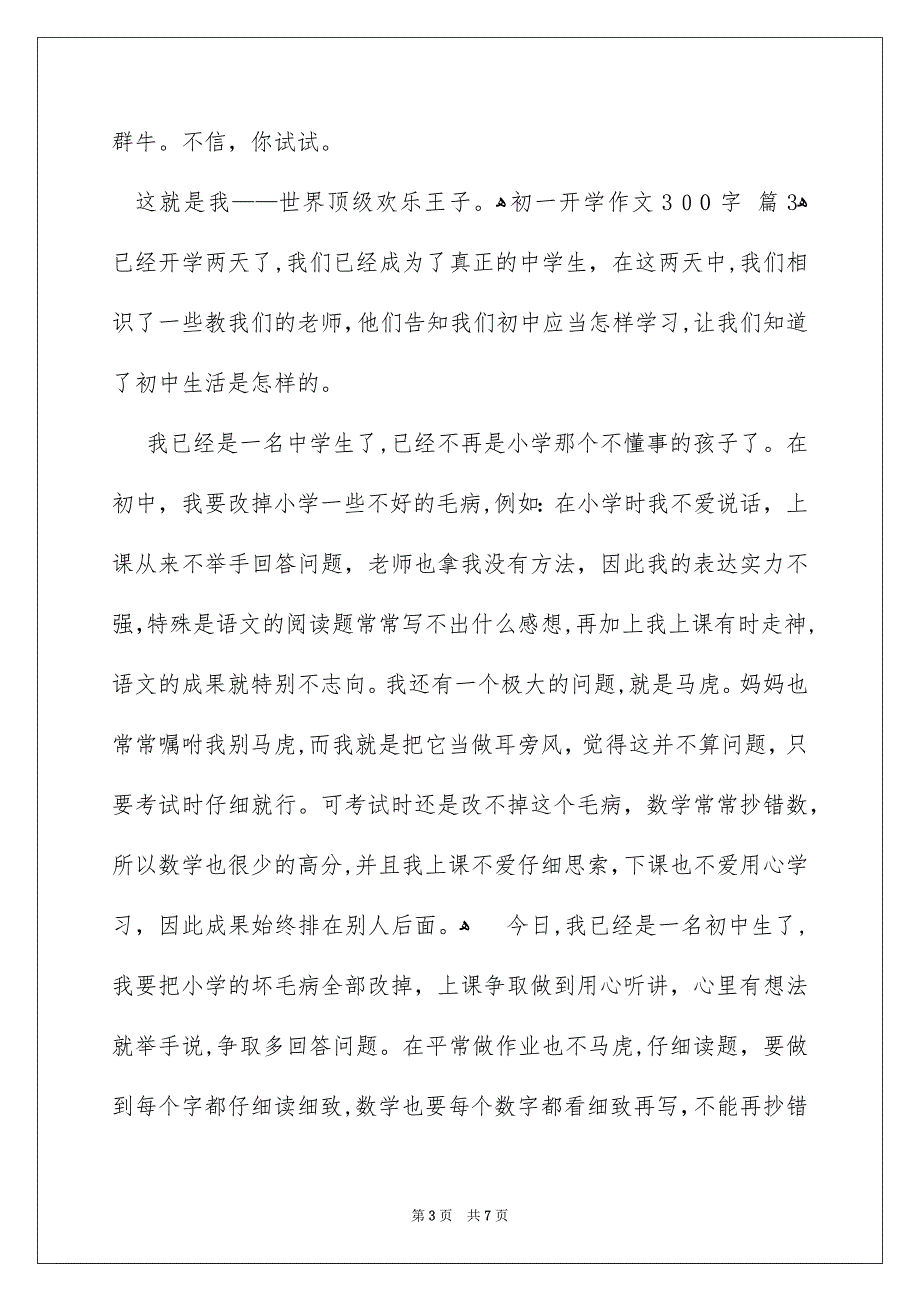 群牛。不信，你试试。
这就是我——世界顶级欢乐王子。ﻫ初一开学作文300字 篇3ﻫ
已经开学两天了,我们已经成为了真正的中学生，在这两天中,我们相
识了一些教我们的老师,他们告知我们初中应当怎样学习,让我们知道
了初中生活是怎样的。
我已经是一名中学生了,已经不再是小学那个不懂事的孩子了。在
初中，我要改掉小学一些不好的毛病,例如:在小学时我不爱说话，上
课从来不举手回答问题，老师也拿我没有方法，因此我的表达实力不
强,特殊是语文的阅读题常常写不出什么感想,再加上我上课有时走神,
语文的成果就特别不志向。我还有一个极大的问题,就是马虎。妈妈也
常常嘱咐我别马虎,而我就是把它当做耳旁风，觉得这并不算问题，只
要考试时仔细就行。可考试时还是改不掉这个毛病，数学常常抄错数,
所以数学也很少的高分,并且我上课不爱仔细思索,下课也不爱用心学
习，因此成果始终排在别人后面。ﻫ 今日,我已经是一名初中生了,
我要把小学的坏毛病全部改掉，上课争取做到用心听讲，心里有想法
就举手说,争取多回答问题。在平常做作业也不马虎,仔细读题，要做
到每个字都仔细读细致,数学也要每个数字都看细致再写,不能再抄错
第3页 共7页